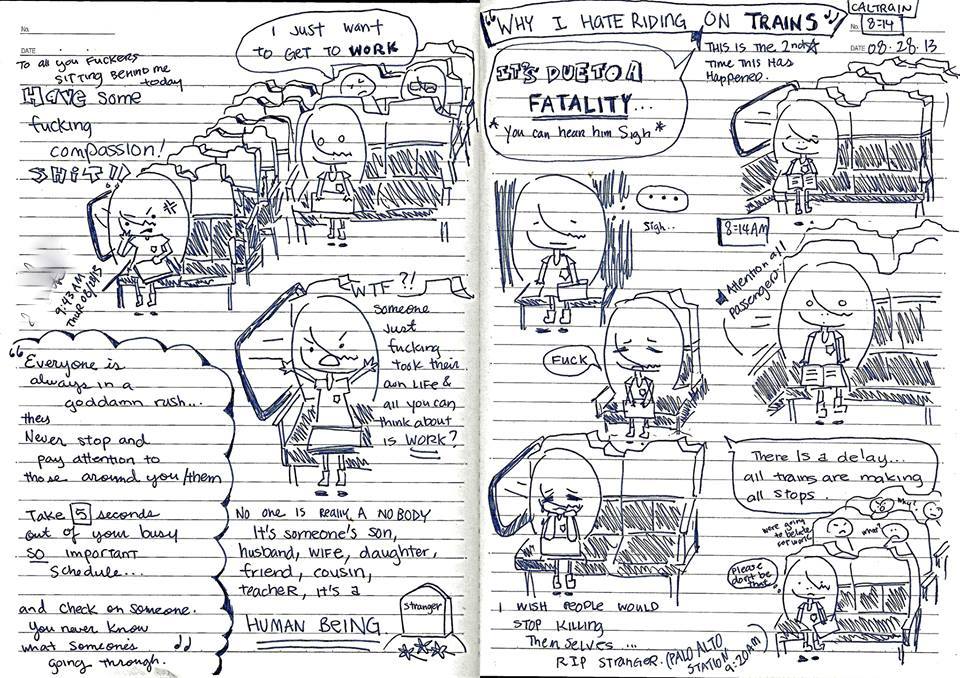 No.
DATE
To all you Fuckers
sitting behind me
today
Have some
fucking
compassion!
SHIT!!
I just want
to get to WORK
9:43 AM
WTF?!
Someone
just
fucking
took their
own LIFE &
all you can
think about
is WORK?
"Everyone is
always in a
goddamn rush...
they
Never stop and
pay attention to
those around you/them
Take 5 seconds
out of your busy
SO important
schedule...
and check on someone.
You never know
what someone's
going through.
No one is really A NOBODY
It's someone's son,
husband, wife, daughter,
friend, cousin,
teacher, it's a
HUMAN BEING
stranger
"WHY I HATE RIDING ON TRAINS"
CALTRAIN
No. 8:14
DATE 08.28.13
This is the 2nd
Time This Has
Happened.
IT'S DUE TO A
FATALITY...
*You can hear him sigh*
! ....
sigh...
8:14AM
Attention all
passengers..
FUCK
There is a delay...
all trains are making
all stops.
were going
to be late
for work
what?
Why?
Please
don't be
that...
I WISH PEOPLE WOULD
STOP KILLING
Themselves...
RIP STRANGER. (PALO ALTO
STATION
9:20AM)